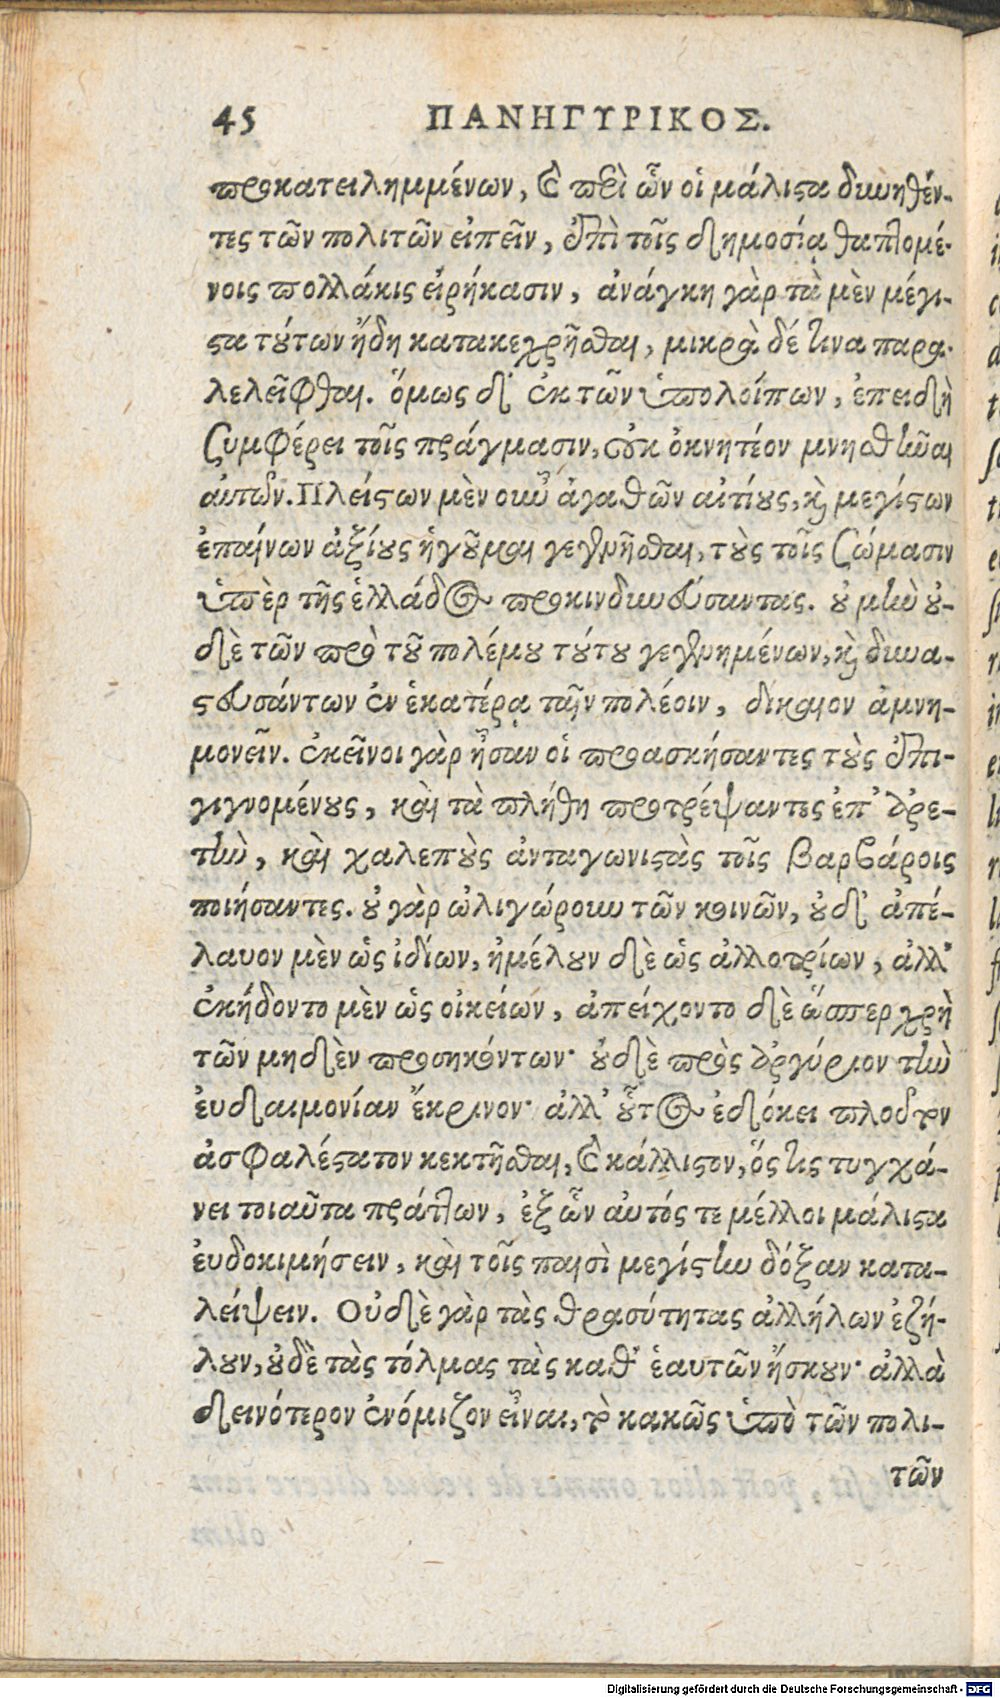 45 ΠΑΝΗΓΥΡΙΚΟΣ.
προκατειλημμένων, καὶ περὶ ὧν οἱ μάλιστα δυνηθέν-
τες τῶν πολιτῶν εἰπεῖν, ἐπὶ τοῖς δημοσίᾳ θαπτομέ-
νοις πολλάκις εἰρήκασιν, ἀνάγκη γὰρ τὰ μὲν μέγι-
στα τούτων ἤδη κατακεχρῆσθαι, μικρὰ δέ τινα παρα-
λελεῖφθαι. ὅμως δ' ἐκ τῶν ὑπολοίπων, ἐπειδὴ
συμφέρει τοῖς πράγμασιν, οὐκ ὀκνητέον μνησθῆναι
αὐτῶν. Πλείστων μὲν οὖν ἀγαθῶν αἰτίους, καὶ μεγίστων
ἐπαίνων ἀξίους ἡγοῦμαι γεγενῆσθαι, τοὺς τοῖς σώμασιν
ὑπὲρ τῆς ἑλλάδος προκινδυνεύσαντας. οὐ μὴν οὐ-
δὲ τῶν πρὸ τοῦ πολέμου τούτου γεγενημένων, καὶ δυνα-
στευσάντων ἐν ἑκατέρᾳ ταῖν πολέοιν, δίκαιον ἀμνη-
μονεῖν. ἐκεῖνοι γὰρ ἦσαν οἱ προασκήσαντες τοὺς ἐπι-
γιγνομένους, καὶ τὰ πλήθη προτρέψαντες ἐπ' ἀρε-
τὴν, καὶ χαλεποὺς ἀνταγωνιστὰς τοῖς βαρβάροις
ποιήσαντες. οὐ γὰρ ὠλιγώρουν τῶν κοινῶν, οὐδ' ἀπέ-
λαυον μὲν ὡς ἰδίων, ἠμέλουν δὲ ὡς ἀλλοτρίων, ἀλλ'
ἐκήδοντο μὲν ὡς οἰκείων, ἀπείχοντο δὲ ὥσπερ χρὴ
τῶν μηδὲν προσηκόντων· οὐδὲ πρὸς ἀργύριον τὴν
ἐυδαιμονίαν ἔκρινον· ἀλλ' οὗτος ἐδόκει πλοῦτον
ἀσφαλέστατον κεκτῆσθαι, καὶ κάλλιστον, ὅστις τυγχά-
νει τοιαῦτα πράττων, ἐξ ὧν αὐτός τε μέλλοι μάλιστα
ἐυδοκιμήσειν, καὶ τοῖς παισὶ μεγίστην δόξαν κατα-
λείψειν. Οὐδὲ γὰρ τὰς θρασύτητας ἀλλήλων ἐζή-
λουν, οὐδὲ τὰς τόλμας τὰς καθ' ἑαυτῶν ἤσκουν· ἀλλὰ
δεινότερον ἐνόμιζον εἶναι, τὸ κακῶς ὑπὸ τῶν πολι-
τῶν
Digitalisierung gefördert durch die Deutsche Forschungsgemeinschaft - DFG